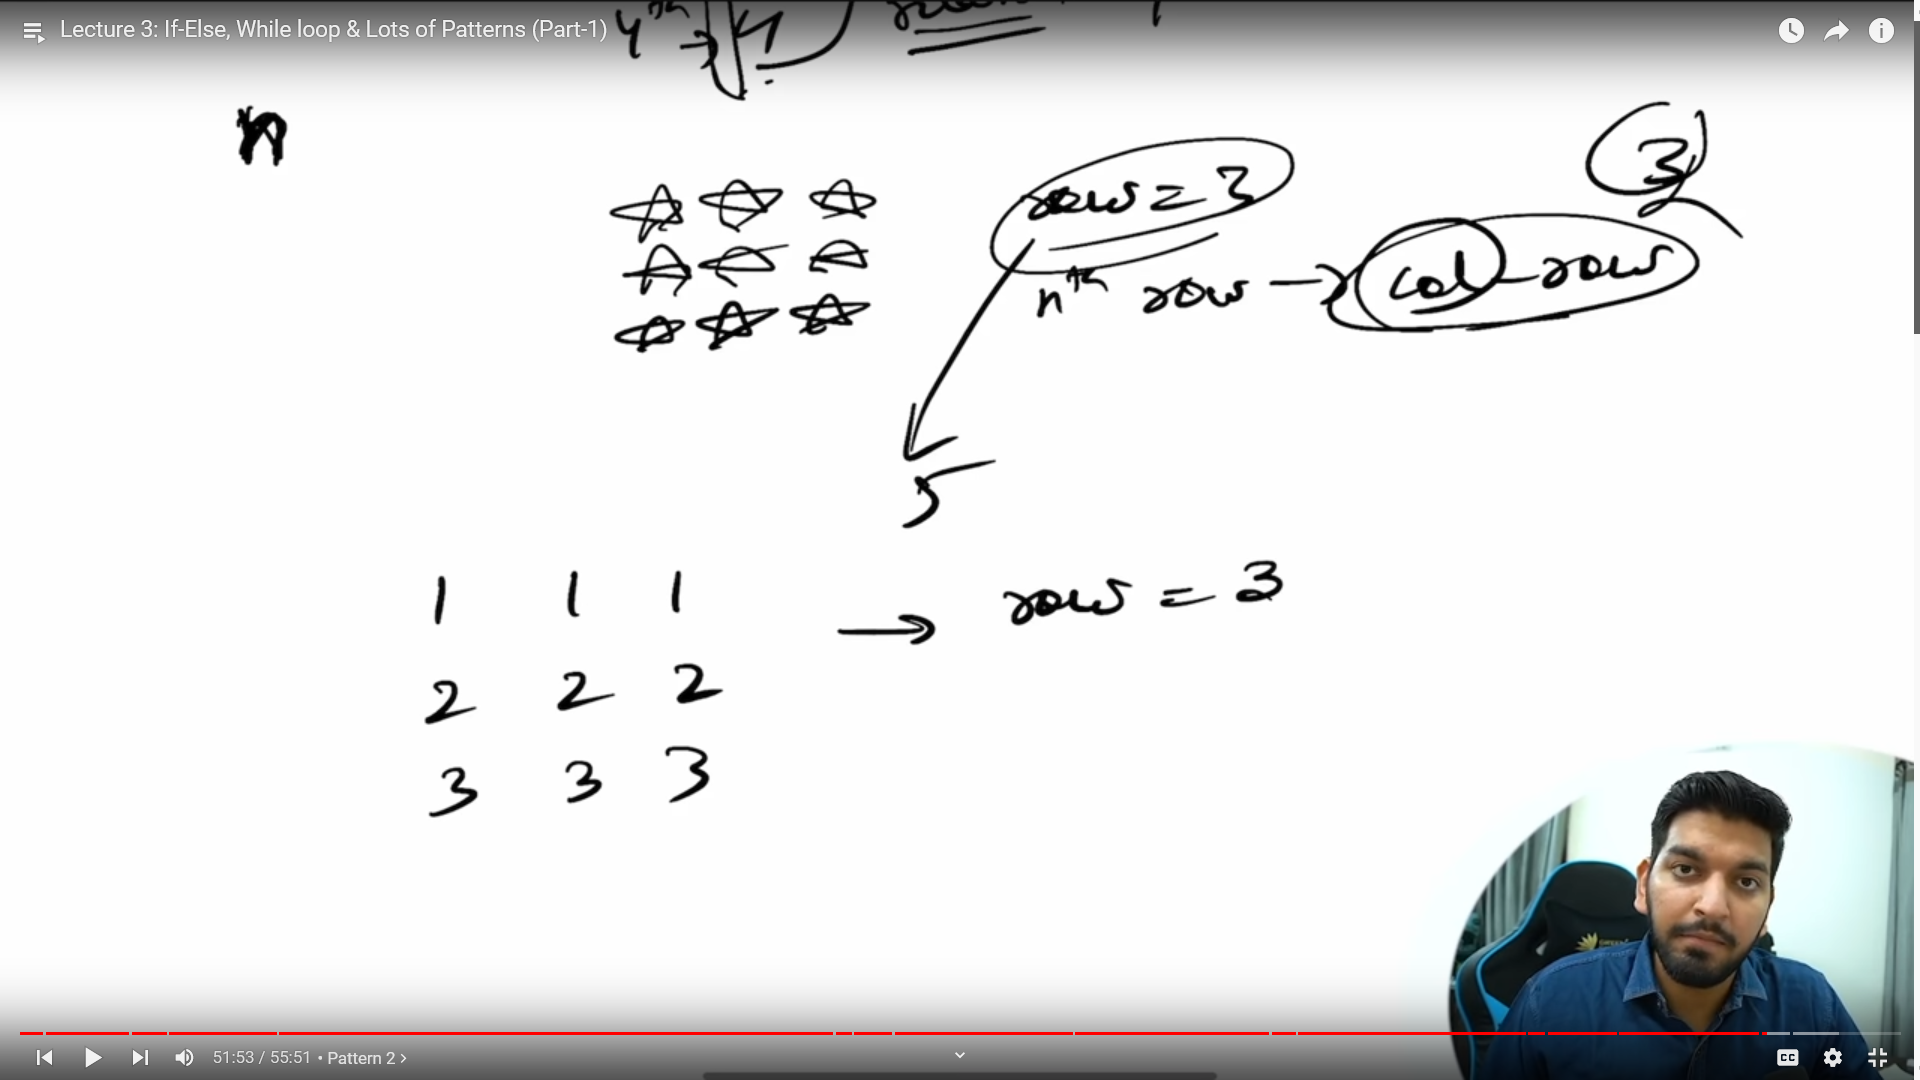 Lecture 3: If-Else, While loop & Lots of Patterns (Part-1)
4th → 4
n
row = 3
3
nth row → col - row
5
1 1 1 → row = 3
2 2 2
3 3 3
51:53 / 55:51 • Pattern 2 >
CC